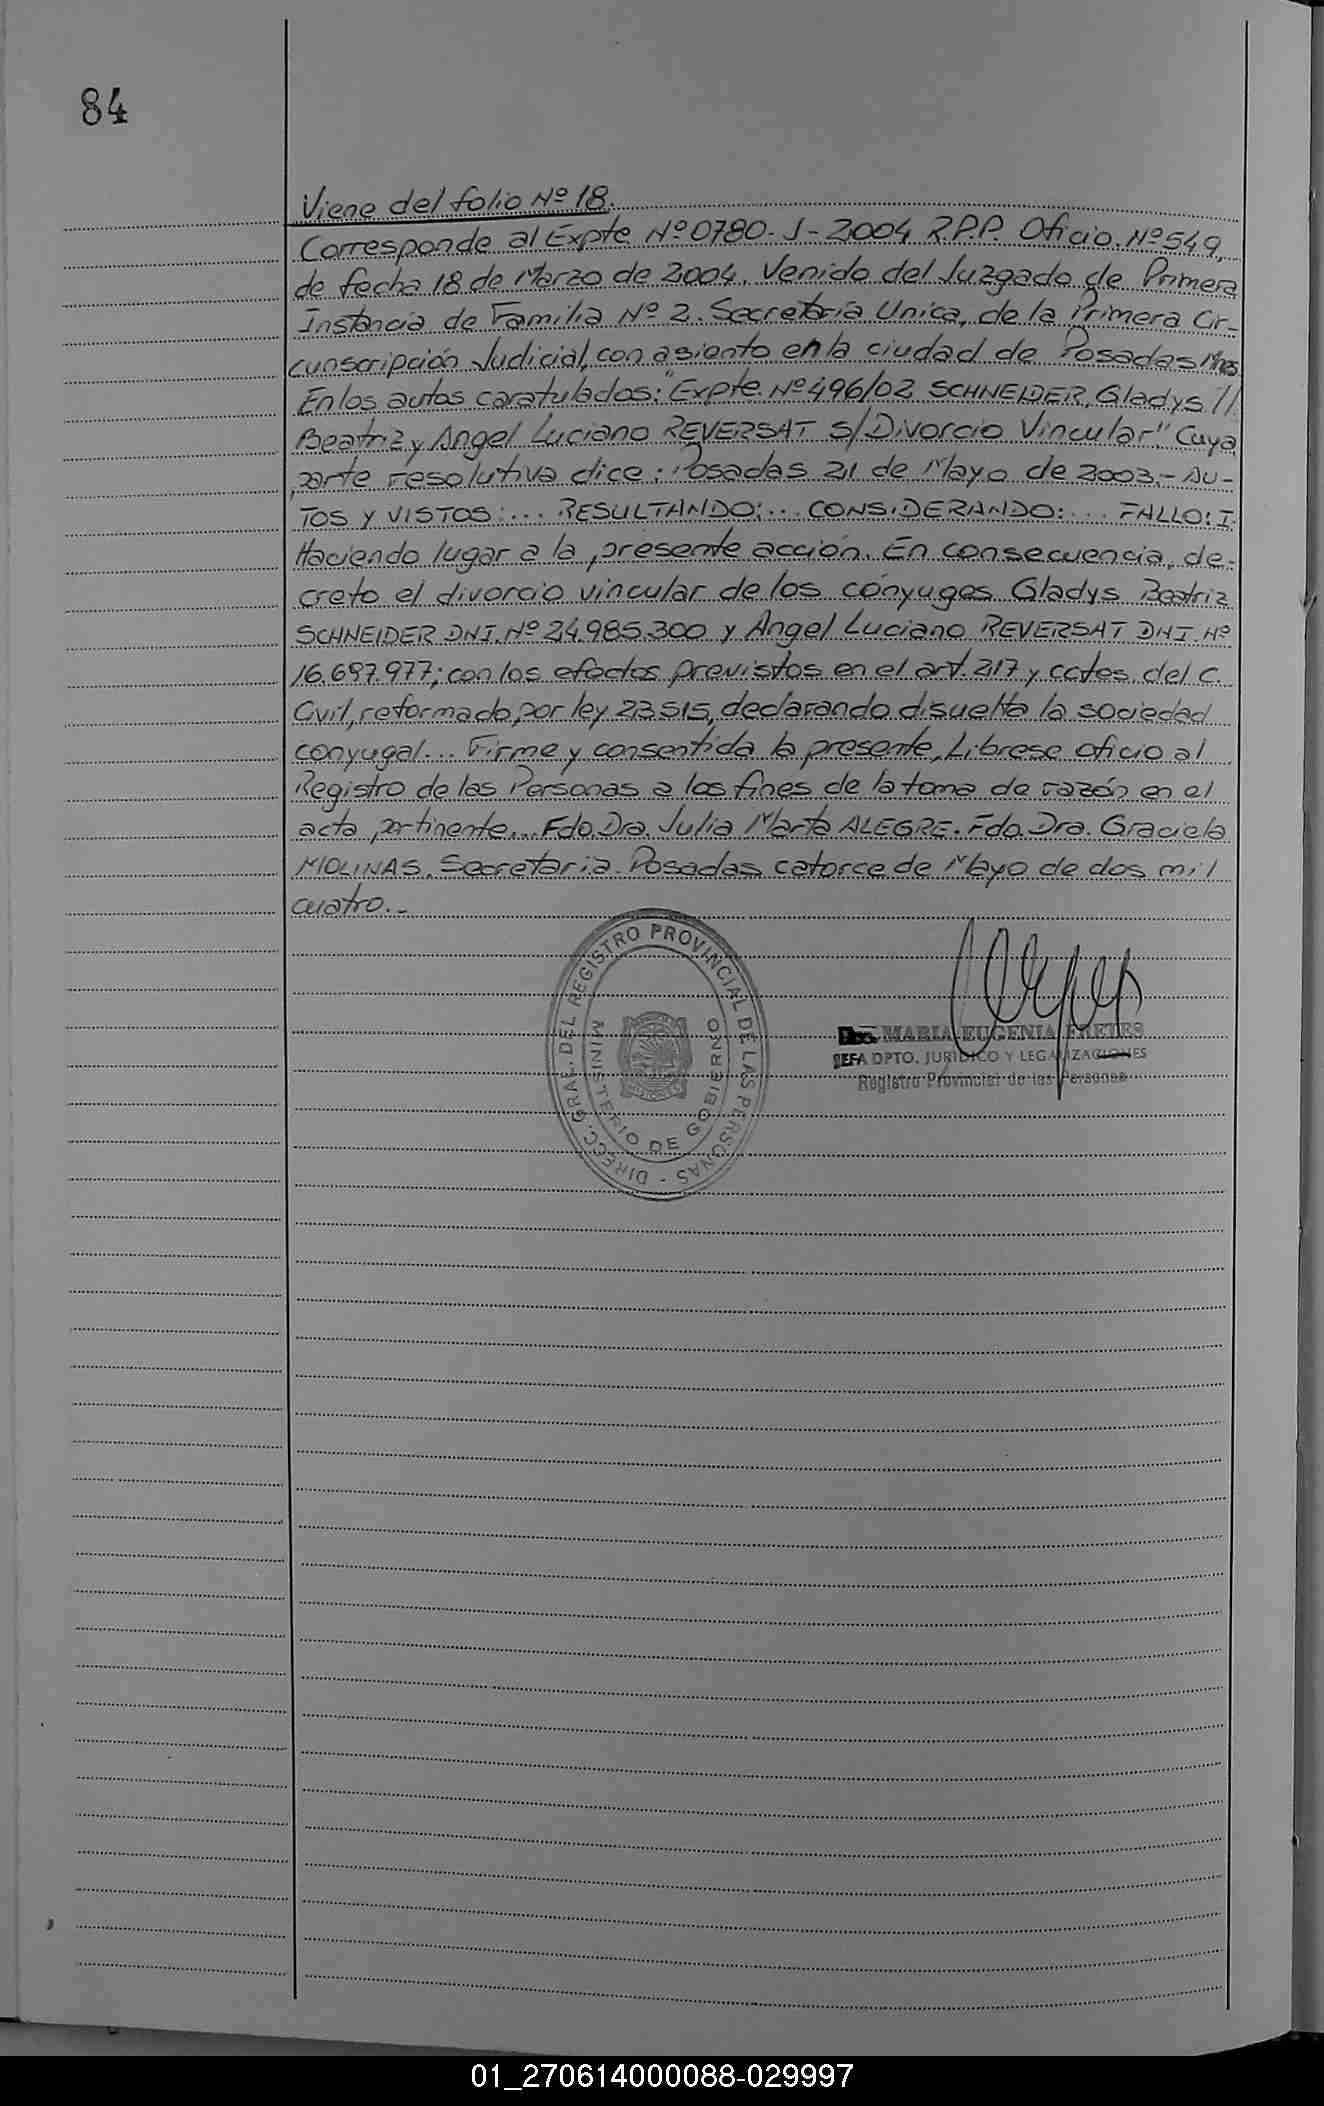 84
Viene del folio Nº 18.
Corresponde al Expte Nº 0780-J-2004 R.P.P. Oficio Nº 549,
de fecha 18 de Marzo de 2004. Venido del Juzgado de Primera
Instancia de Familia Nº 2. Secretaría Unica, de la Primera Cir-
cunscripción Judicial, con asiento en la ciudad de Posadas Mnes
En los autos caratulados: "Expte. Nº 496/02 SCHNEIDER, Gladys //
Beatriz y Angel Luciano REVERSAT S/Divorcio Vincular". Cuya
parte resolutiva dice: Posadas 21 de Mayo de 2003.- AU-
TOS Y VISTOS:... RESULTANDO:... CONSIDERANDO:... FALLO: I
Haciendo lugar a la presente acción. En consecuencia, de-
creto el divorcio vincular de los cónyuges Gladys Beatriz
SCHNEIDER DNI. Nº 24.985.300 y Angel Luciano REVERSAT DNI. Nº
16.697.977; con los efectos previstos en el art. 217 y cctes. del C.
Civil, reformado por ley 23515, declarando disuelta la sociedad
conyugal... Firme y consentida la presente, Líbrese oficio al
Registro de las Personas a los fines de la toma de razón en el
acta pertinente... Fdo. Dra. Julia Marta ALEGRE. Fdo. Dra. Graciela
MOLINAS. Secretaria. Posadas catorce de Mayo de dos mil
cuatro.-
DIRECC. GRAL. DEL REGISTRO PROVINCIAL DE LAS PERSONAS -
MINISTERIO DE GOBIERNO
Dra. MARIA EUGENIA FRETES
JEFA DPTO. JURIDICO Y LEGALIZACIONES
Registro Provincial de las Personas
01_270614000088-029997